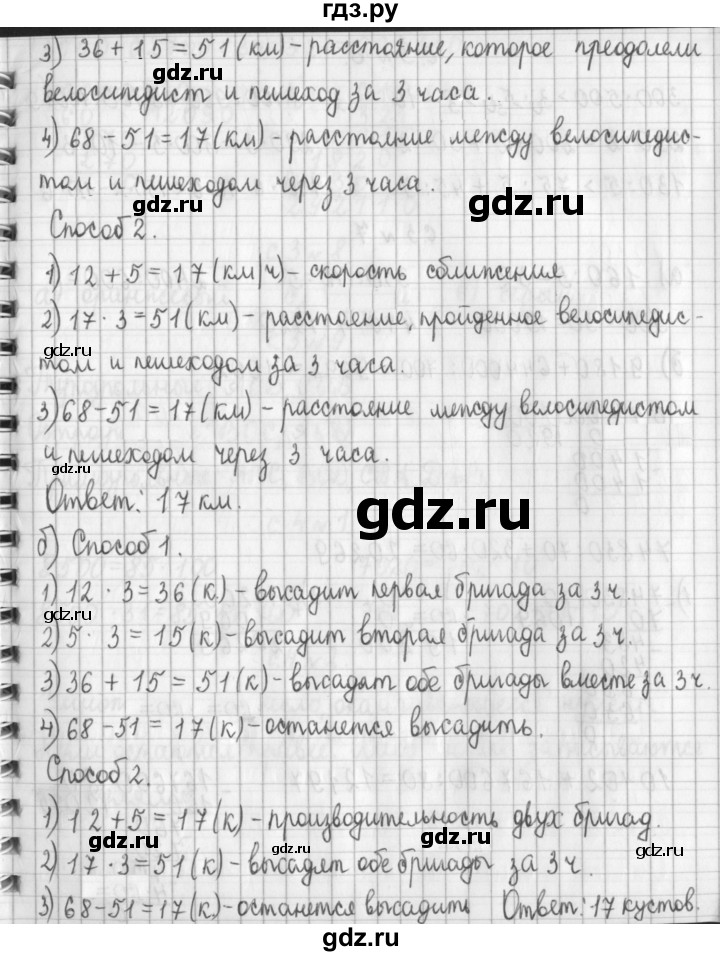 гдз.ру
3) 36 + 15 = 51 (км) - расстояние, которое преодолели
gdz.ru gdz.ru
велосипедист и пешеход за 3 часа.
4) 68 - 51 = 17 (км) - расстояние между велосипедис-
gdz.ru
том и пешеходом через 3 часа.
gdz.ru
Способ 2.
1) 12 + 5 = 17 (км/ч) - скорость сближения
gdz.ru gdz.ru
2) 17 · 3 = 51 (км) - расстояние, пройденное велосипедис-
gdz.ru
том и пешеходом за 3 часа.
gdz.ru
3) 68 - 51 = 17 (км) - расстояние между велосипедистом
и пешеходом через 3 часа.
gdz.ru gdz.ru
Ответ: 17 км.
gdz.ru
б) Способ 1.
gdz.ru
1) 12 · 3 = 36 (к.) - высадит первая бригада за 3 ч.
gdz.ru gdz.ru
2) 5 · 3 = 15 (к) - высадит вторая бригада за 3 ч.
3) 36 + 15 = 51 (к) - высадят обе бригады вместе за 3 ч.
gdz.ru
4) 68 - 51 = 17 (к) - останется высадить.
gdz.ru
Способ 2.
1) 12 + 5 = 17 (к) - производительность двух бригад.
gdz.ru gdz.ru
2) 17 · 3 = 51 (к) - высадят обе бригады за 3 ч.
gdz.ru
3) 68 - 51 = 17 (к) - останется высадить Ответ: 17 кустов.
gdz.ru
гдз.ру